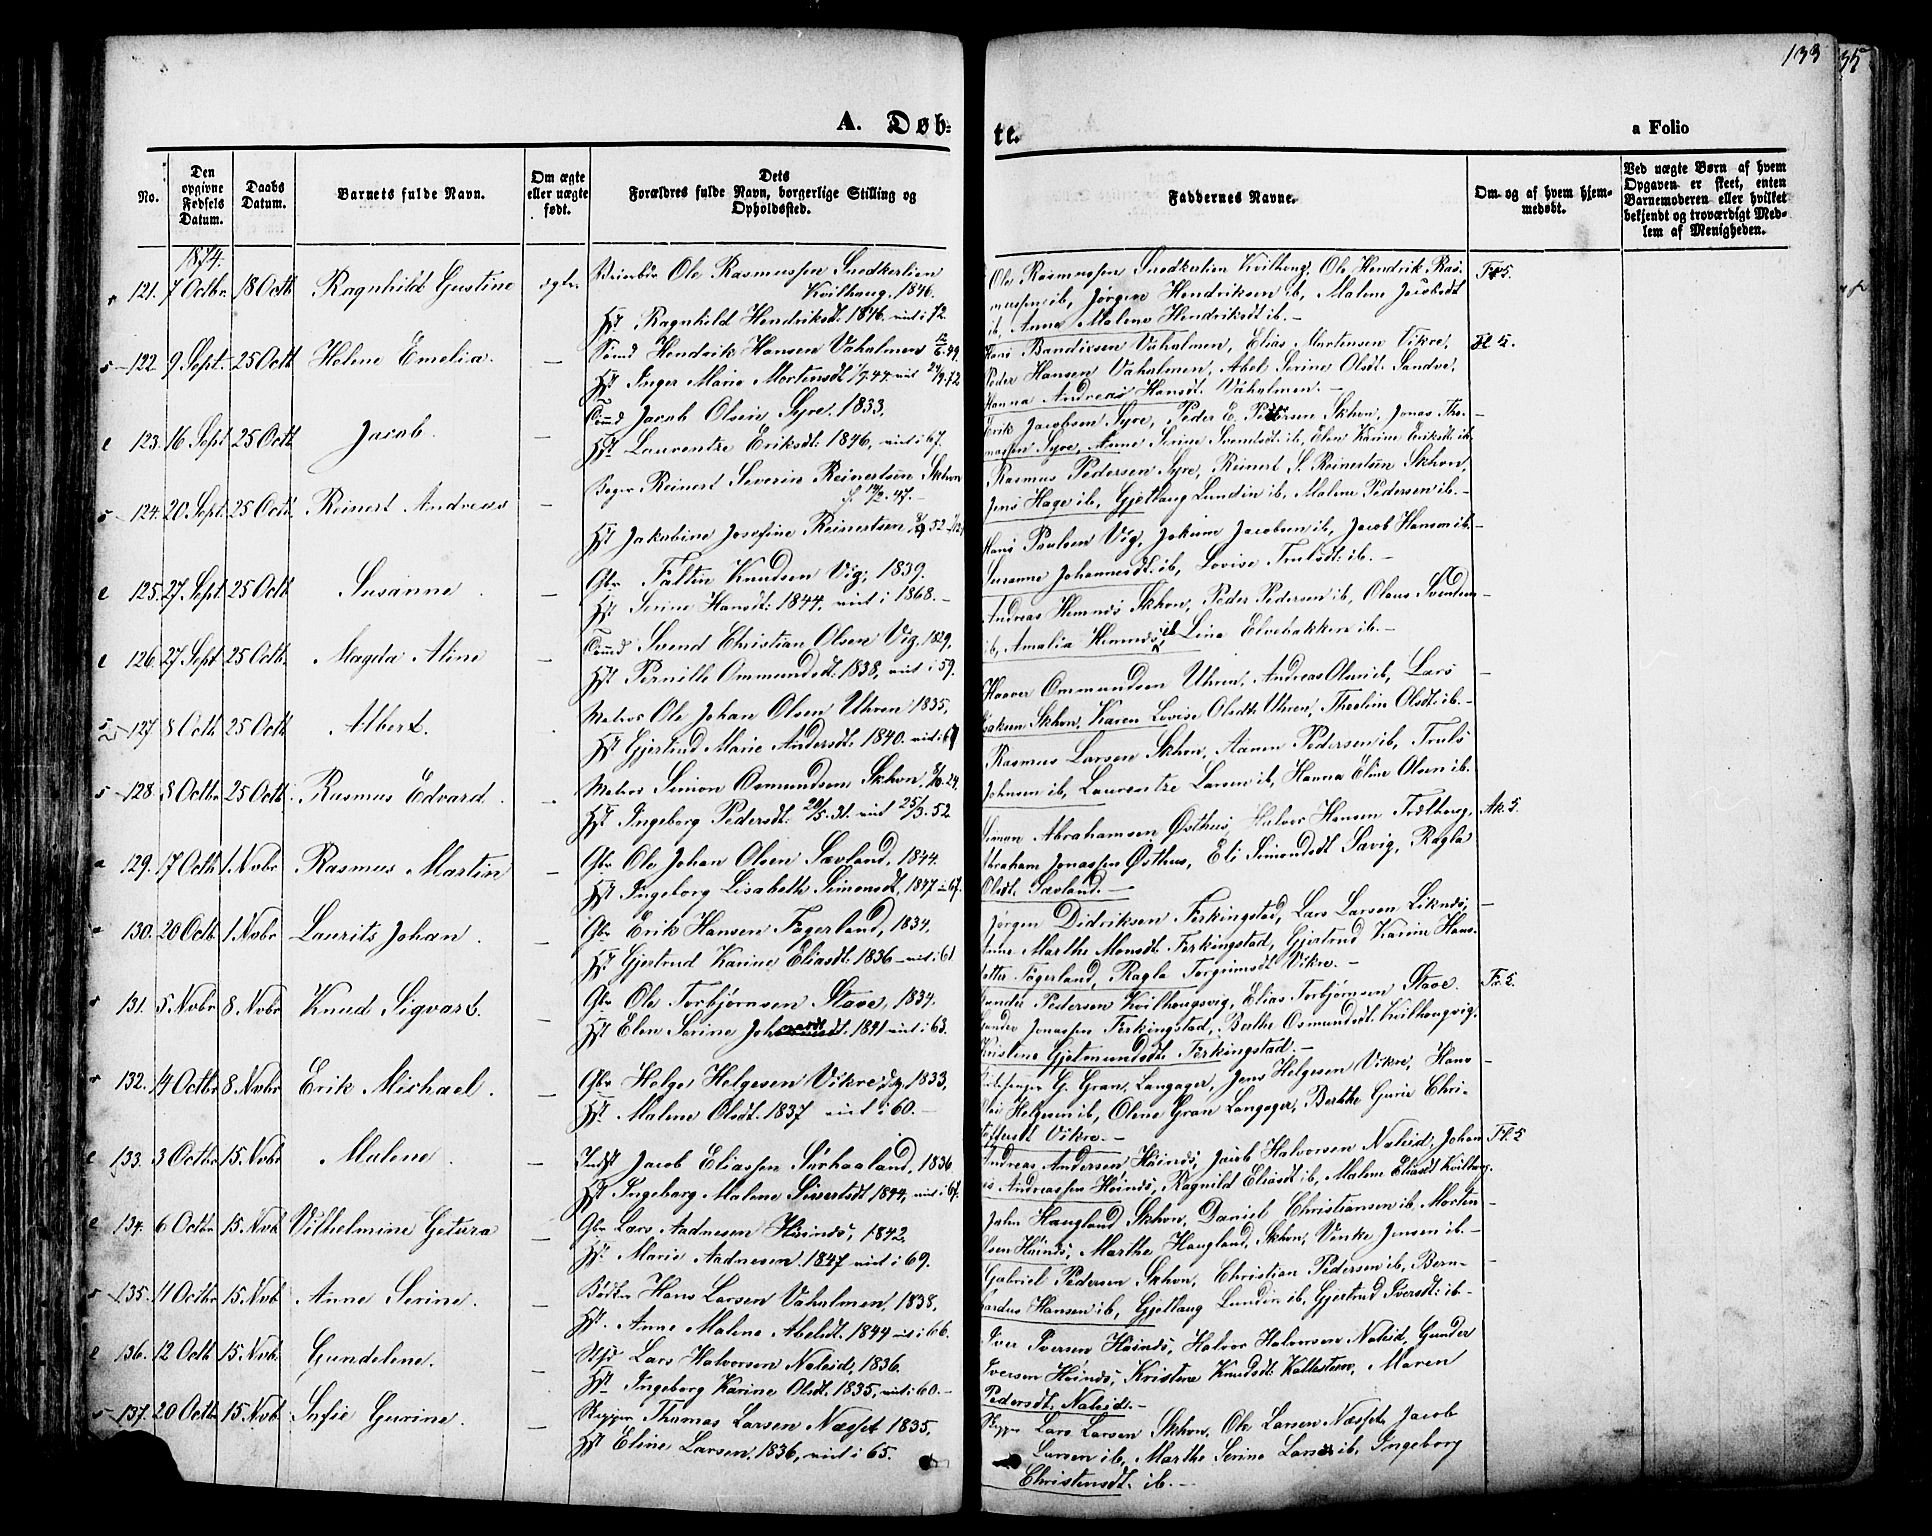 133
35
A. Døb=
te.
a Folio
No.
Den opgivne Fødsels Datum.
Daabs Datum.
Barnets fulde Navn.
Om ægte eller uægte født.
Dets Forældres fulde Navn, borgerlige Stilling og Opholdssted.
Faddernes Navne.
Om og af hvem hjemmedøbt.
Ved uægte Børn af hvem Opgaven er skeet, enten Barnemoderen eller hvilket bekjendt og troværdigt Medlem af Menigheden.
1874.
121. 7 Octbr 18 Octb Ragnhild Gustine ægte Ole Rasmussen Snedkerlien
Kvilhaug. 1846.
Hst Ragnhild Hendriksdt. 1846. viet i 72.
Ole Rasmussen Snedkerlien Kvilhaug, Ole Hendrik Ras-
mussen ib, Jørgen Hendriksen ib, Malene Jacobsdt
ib, Anna Malene Hendriksdt ib. –
122. 9 Sept. 25 Octb Helene Emelia. – Hendrik Hansen Vaholmen
Hst Inger Marie Mortensdt
Hans Bendiksen Vaholmen, Elias Mortensen Vikre,
Peder Hansen Vaholmen, Abel Serine Olsdt. Sandve,
Hanna Andrea Hansdt. Vaholmen. –
123. 16 Sept 25 Octb Jacob. – Jacob Olsen Syre. 1833.
Hst Laurentze Eriksdt. 1846, viet i 67.
Erik Jacobsen Syre, Peder E. Pedersen Skhvn, Jonas Tho-
massen Syre, Anne Serine Svendsdt ib, Elen Karine Eriksdt ib.
124. 20 Sept. 25 Octb. Reinert Andreas – Reinert Severin Reinertsen Skhvn
Hst Jakobine Josefine Reinertsen
Rasmus Pedersen Syre, Reinert S. Reinertsen Skhvn,
Jens Hage ib, Gjetlaug Lundin ib, Malene Pedersen ib. –
125. 27 Sept 25 Octb Susanne. – Gbr Faltin Knudsen Vig, 1839.
Hst Serine Hansdt: 1844, viet i 1868. –
Hans Paulsen Vig, Jokum Jacobsen ib, Jacob Hansen ib.
Susanne Johannesdt: ib, Lovise Trulsdt: ib. –
126. 27 Sept 25 Octb. Magda Aline – Svend Christian Olsen Vig. 1829,
Hst Pernille Ommundsdt: 1838, viet i 59.
Andreas Hemnes Skhvn, Peder Pedersen ib, Olaus Svendsen
ib, Amalia Hemnes ib, Lina Elvebakken ib. –
127. 8 Octb 25 Octb Albert. Matros Ole Johan Olsen Uhren 1835,
Hst Gjertrud Marie Andersdt. 1840. viet i 61
Haaver Ommundsen Uhren, Andreas Olsen ib, Lars
Skhvn, Karen Lovise Olsdt Uhren, Theoline Olsdt: ib. –
128. 8 Octbr 25 Octb. Rasmus Edvard. Matros Simon Osmundsen Skhvn
Hst Ingeborg Pedersdt: 20/5. 31. viet 25/3. 52.
Rasmus Larsen Skhvn, Aanen Pedersen ib, Truls
Johnsen ib, Laurentze Larsen ib, Hanna Eline Olsen ib.
129. 17 Octb 1. Novbr Rasmus Martin – Gbr Ole Johan Olsen Sævland, 1844.
Hst Ingeborg Lisabeth Simonsdt, 1847 i 67.
Simon Abrahamsen Østhus, Halvor Hansen
Abraham Jonassen Østhus, Eli Simondsdt Sævig, Ragla
Olsdt. Sævland. –
130. 20 Octb 1. Novbr Laurits Johan. – Gbr Erik Hansen Fagerland, 1834.
Hst Gjertrud Karine Eliasdt. 1836 – viet i 61.
Jørgen Didriksen Ferkingstad, Lars Larsen Liknes,
Marthe Monsdt. Ferkingstad, Gjertrud Karine Hans-
datter Fagerland, Ragla Torgrimsdt Vikre. –
131. 5 Novbr 8. Novbr Knud Sigvart. – Gbr Ole Torbjørnsen Stave, 1834.
Hst Elen Serine 1841 viet i 63.
Gunder Pedersen Kvilhaugsvig, Elias Torbjørnsen Stave.
Gunder Jonassen Ferkingstad, Berthe Osmundsdt. Kvilhaugvig.
Kristene Gjetmundsdt. Ferkingstad. –
132. 14 Octbr 8. Novbr Erik Michael. – Gbr Helge Helgesen Vikre 1833,
Hst. Malene Olsdt. 1837 viet i 60. –
G. Gran, Langager, Jens Helgesen Vikre, Hans
Helgesen ib, Olene Gran Langager, Berthe Gurie Chri-
stoffersdt Vikre. –
133. 3 Octbr 15. Novbr Malene. – Indst Jacob Eliassen Sørhaaland, 1836
Hst Ingeborg Malene Sivertsdt 1844, viet i 67.
Andreas Andersen Høines, Jacob Halvorsen Naleid, Johan
Andreassen Høines, Ragnild Eliasdt ib, Malene Eliasdt Kvilhaug.
134. 6 Octbr 15. Novb Vilhelmine Getura – Gbr Lars Aadnesen Høines, 1842,
Hst. Marie Aadnesen. 1847 viet i 69.
John Haugland Skhvn, Daniel Christiansen ib, Morten
Olsen Høines, Marthe Haugland, Skhvn, Vinke Jensen ib. –
135. 11 Octbr 15. Novb. Anne Serine. – Hans Larsen Vaholmen, 1838,
Hst. Anne Malene Abelsdt. 1844 i 66.
Gabriel Pedersen Skhvn, Christian Pedersen ib, Bern-
hardus Hansen ib, Gjetlaug Lundin ib, Gjertrud Iversdt: ib –
136. 12 Octb 15. Novb. Gundelene. – Lars Halvorsen Naleid, 1836.
Hst. Ingeborg Karine Olsdt. 1835, viet i 60. –
Iver Iversen Høines, Halvor Halvorsen Naleid, Gunder
Iversen Høines, Kristene Knudsdt: Kallesten, Maren
Pedersdt. Naleid. –
137. 20 Octbr 15. Novb. Sofie Gurine. – Skipper Thomas Larsen Næsset 1835,
Hst Eline Larsen, 1836, viet i 65.
Lars Larsen Skhvn, Ole Larsen Næsset, Jacob
Larsen ib, Marthe Serine Larsen ib, Ingeborg
Christensdt. ib. –